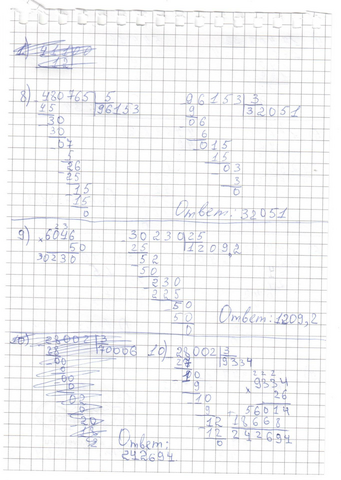 8) 480765 | 5
45 | 96153
30
30
07
5
26
25
15
15
0
96153 | 3
9 | 32051
06
6
015
15
03
3
0
Ответ: 32051
9) × 6046
50
30230
30230 | 25
25 | 1209,2
52
50
230
225
50
50
0
Ответ: 1209,2
10) 28002 | 3
27 | 9334
10
9
10
9
12
12
0
2 2 2
9334
× 26
56014
18668
242694
Ответ:
242694